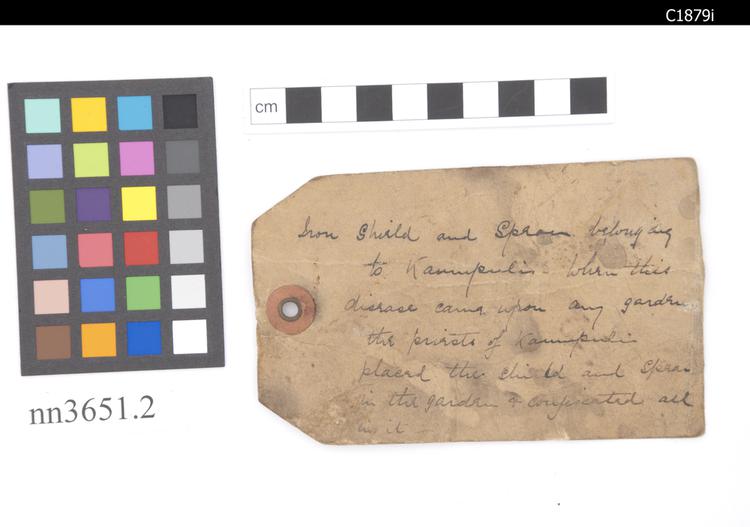 C1879i
cm
Iron Shield and Spear belonging
to Kaumpuli. When this
disease came upon any garden
the priests of Kaumpuli
placed the shield and spear
in the garden & confiscated all
in it
nn3651.2